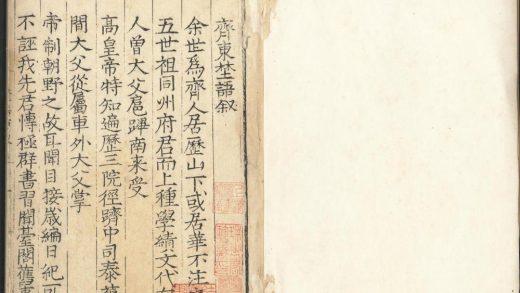 齊東埜語叙
余世爲齊人居歷山下或居華不注
五世祖同州府君而上種學績文代有
人曾大父扈蹕南来受
髙皇帝特知遍歷三院徑躋中司泰
間大父從屬車外大父掌
帝制朝野之故耳聞目接歳編日紀可
不誣我先君慱極群書習聞臺閣舊事